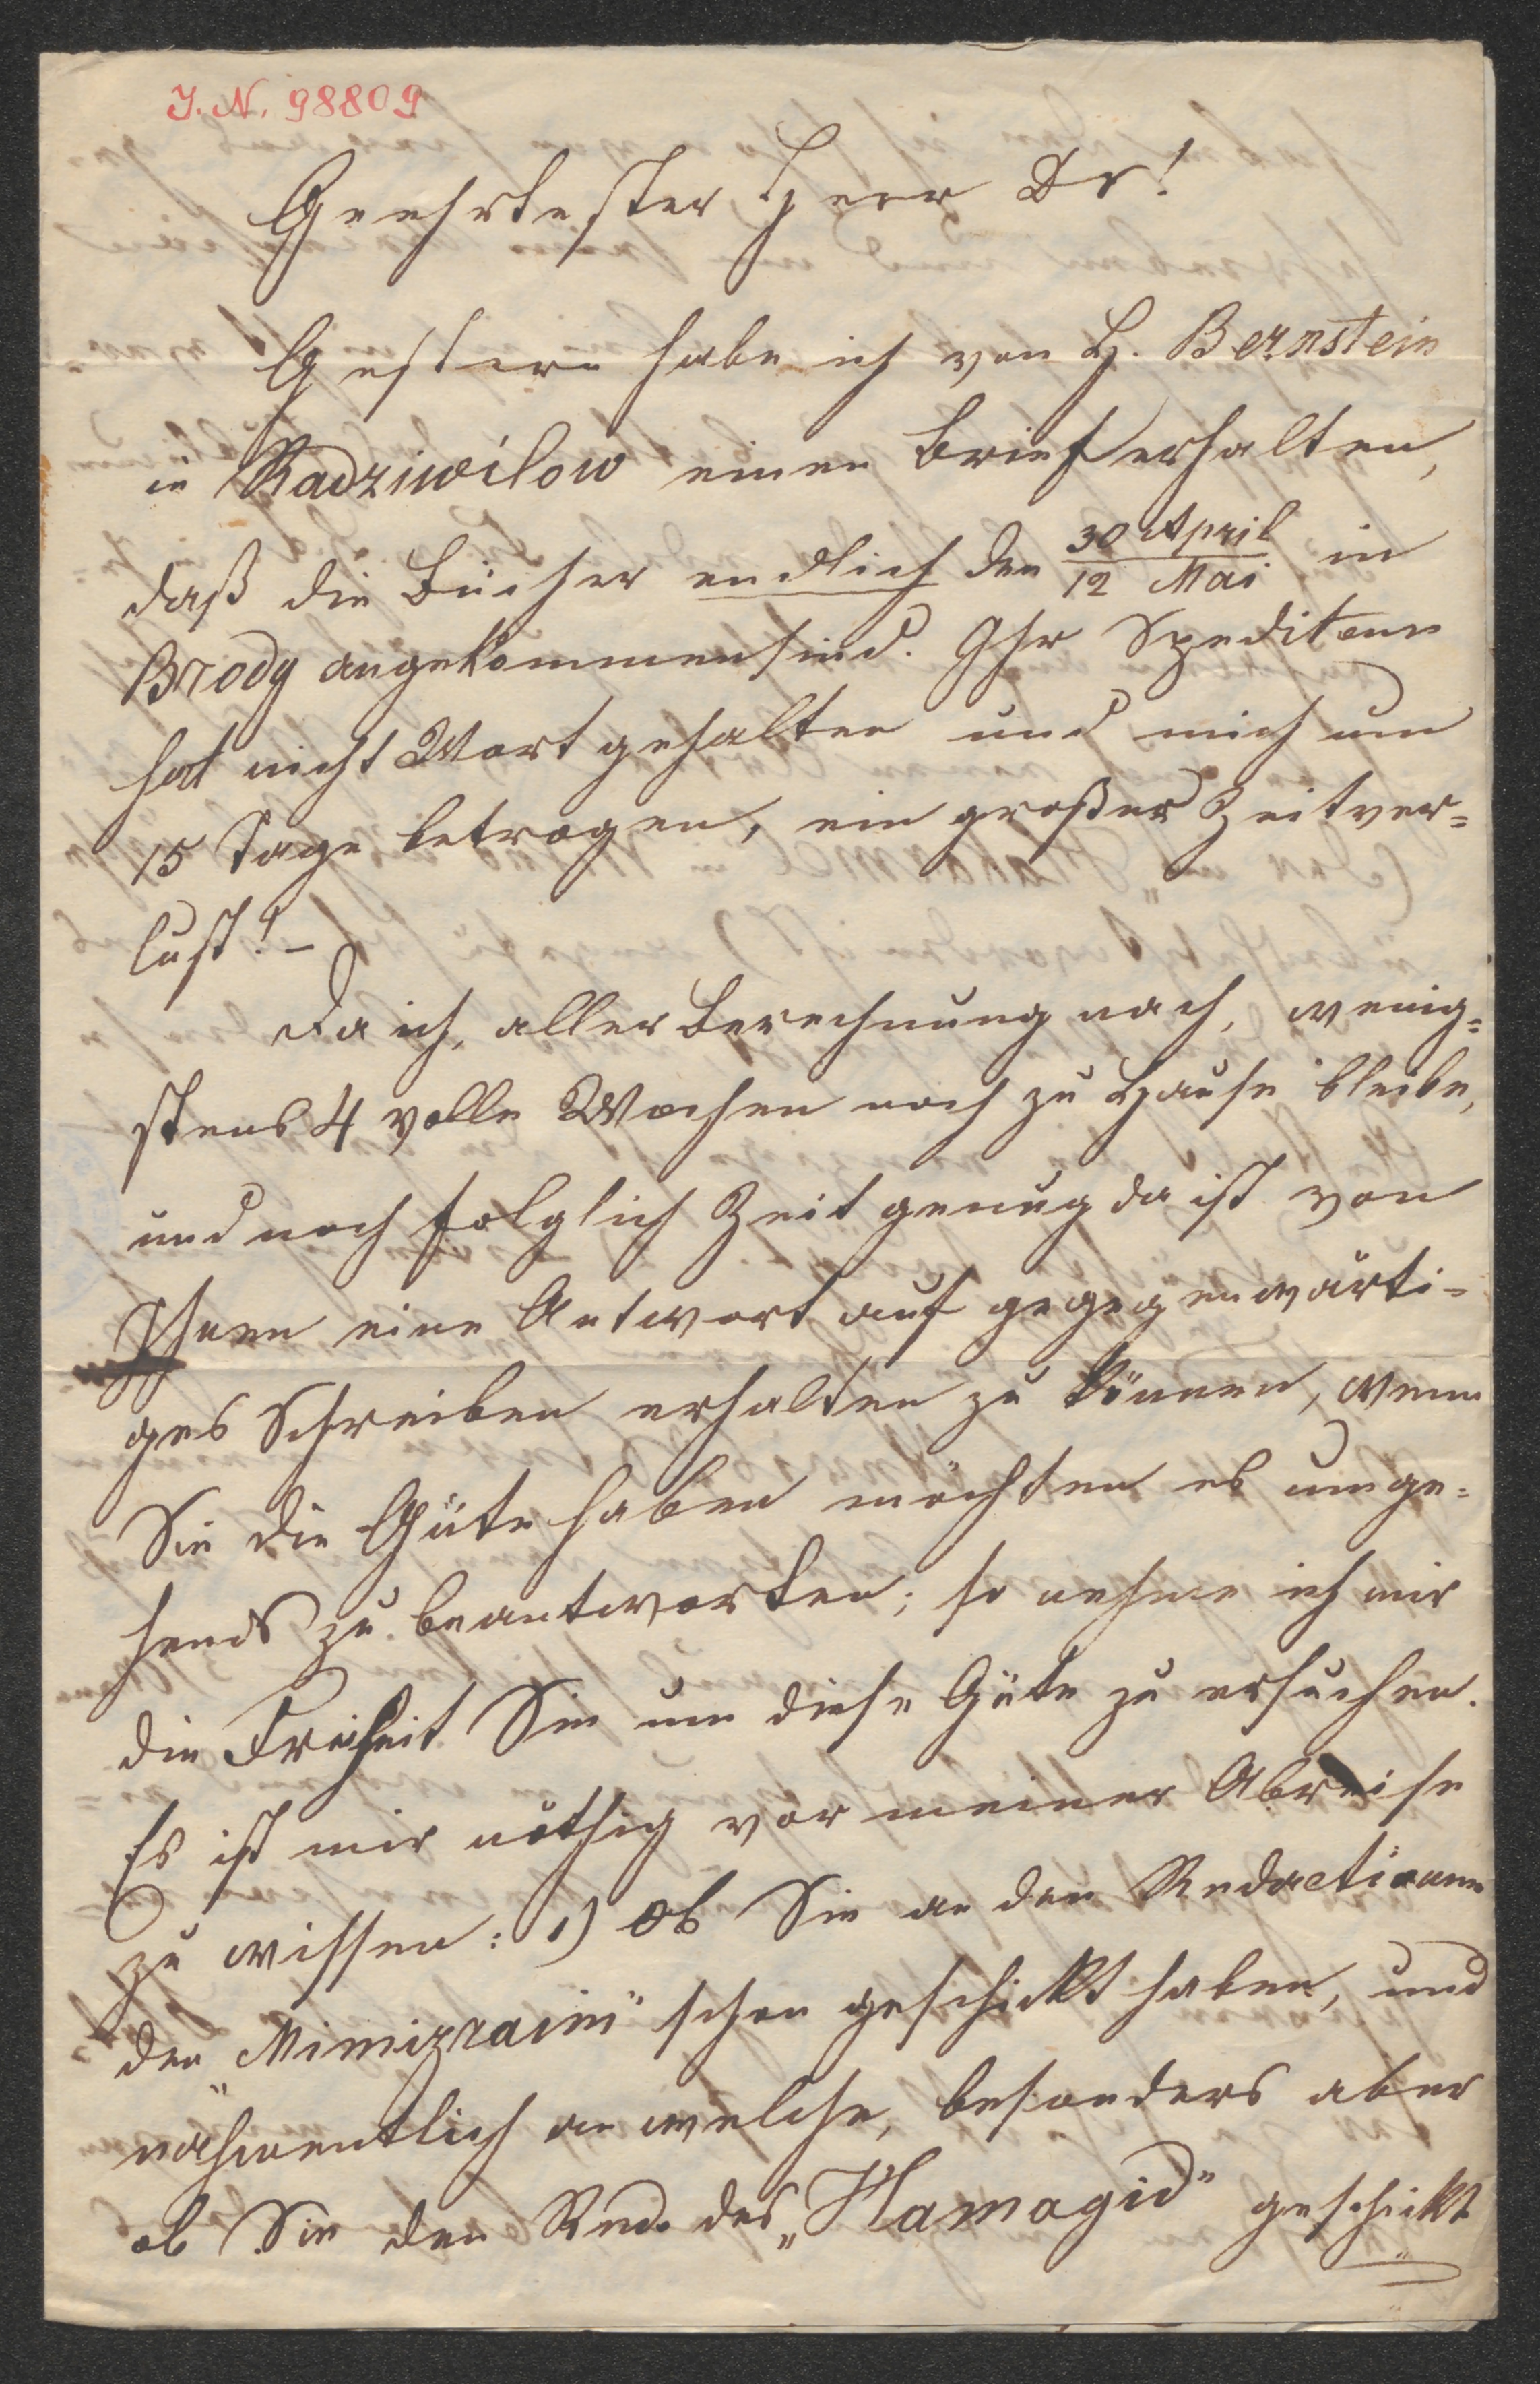 J. N. 98809
Geehrtester Herr Dr!
Gestern habe ich von H. Bernstein
in Radziwilow einen Brief erhalten,
daß die Bücher endlich den 30 April / 12 Mai in
Brody angekommen sind. Ihr Spediteur
hat nicht Wort gehalten und mich um
15 Tage betrogen, ein großer Zeitver=
lust! –
Da ich, aller Berechnung nach, wenig=
stens 4 volle Wochen noch zu Hause bleibe,
und noch folglich Zeit genug da ist von
Ihnen eine Antwort auf gegegenwärti=
ges Schreiben erhalten zu können, wenn
Sie die Güte haben möchten es umge=
hends zu beantworten; so nehme ich mir
die Freiheit Sie um diese Güte zu ersuchen.
Es ist mir nöthig vor meiner Abreise
zu wissen: 1) Ob Sie an den Redactionen
den „Mimizraim" schon geschickt haben, und
nahmentlich an welche, besonders aber
ob Sie den Red. des „Hamagid" geschickt